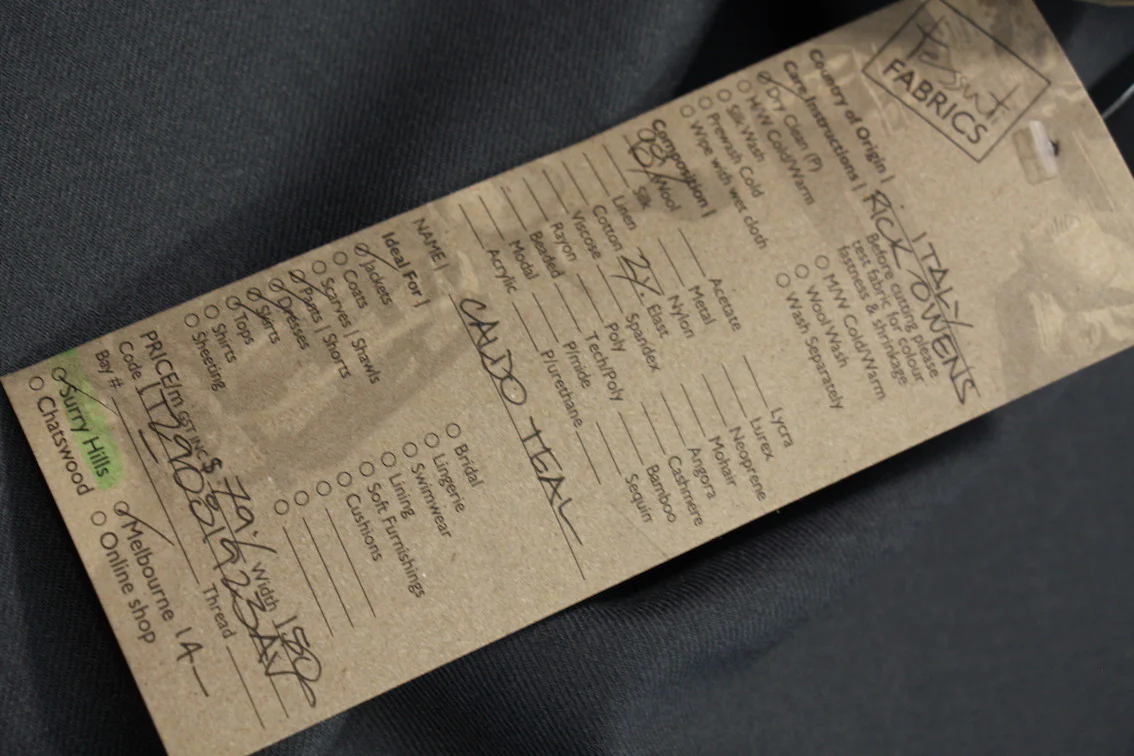 tessuti
FABRICS
Country of Origin | ITALY
RICK OWENS
Care Instructions |
Dry Clean (P)
H/W Cold/Warm
Silk Wash
Prewash Cold
Wipe with wet cloth
Before cutting please
test fabric for colour
fastness & shrinkage
M/W Cold/Warm
Wool Wash
Wash Separately
Composition |
98% Wool
Silk
Linen
Cotton
Viscose
Rayon
Beaded
Modal
Acrylic
Acetate
Metal
Nylon
2% Elast
Spandex
Poly
Tech/Poly
P/mide
P/urethane
Lycra
Lurex
Neoprene
Mohair
Angora
Cashmere
Bamboo
Sequin
NAME | CALDO TEAL
Ideal For |
Jackets
Coats
Scarves | Shawls
Pants | Shorts
Dresses
Skirts
Tops
Shirts
Sheeting
Bridal
Lingerie
Swimwear
Lining
Soft Furnishings
Cushions
PRICE/m GST INC $ 79.- Width 150
Code |
Bay # Thread
Surry Hills
Chatswood
Melbourne 1A
Online shop